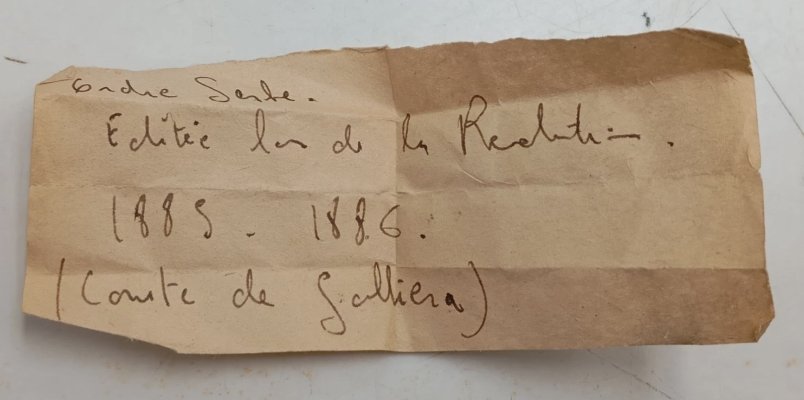 Ordre Serbe.
Editée lors de la Revolution.
1885 - 1886.
(Comte de Galliera)